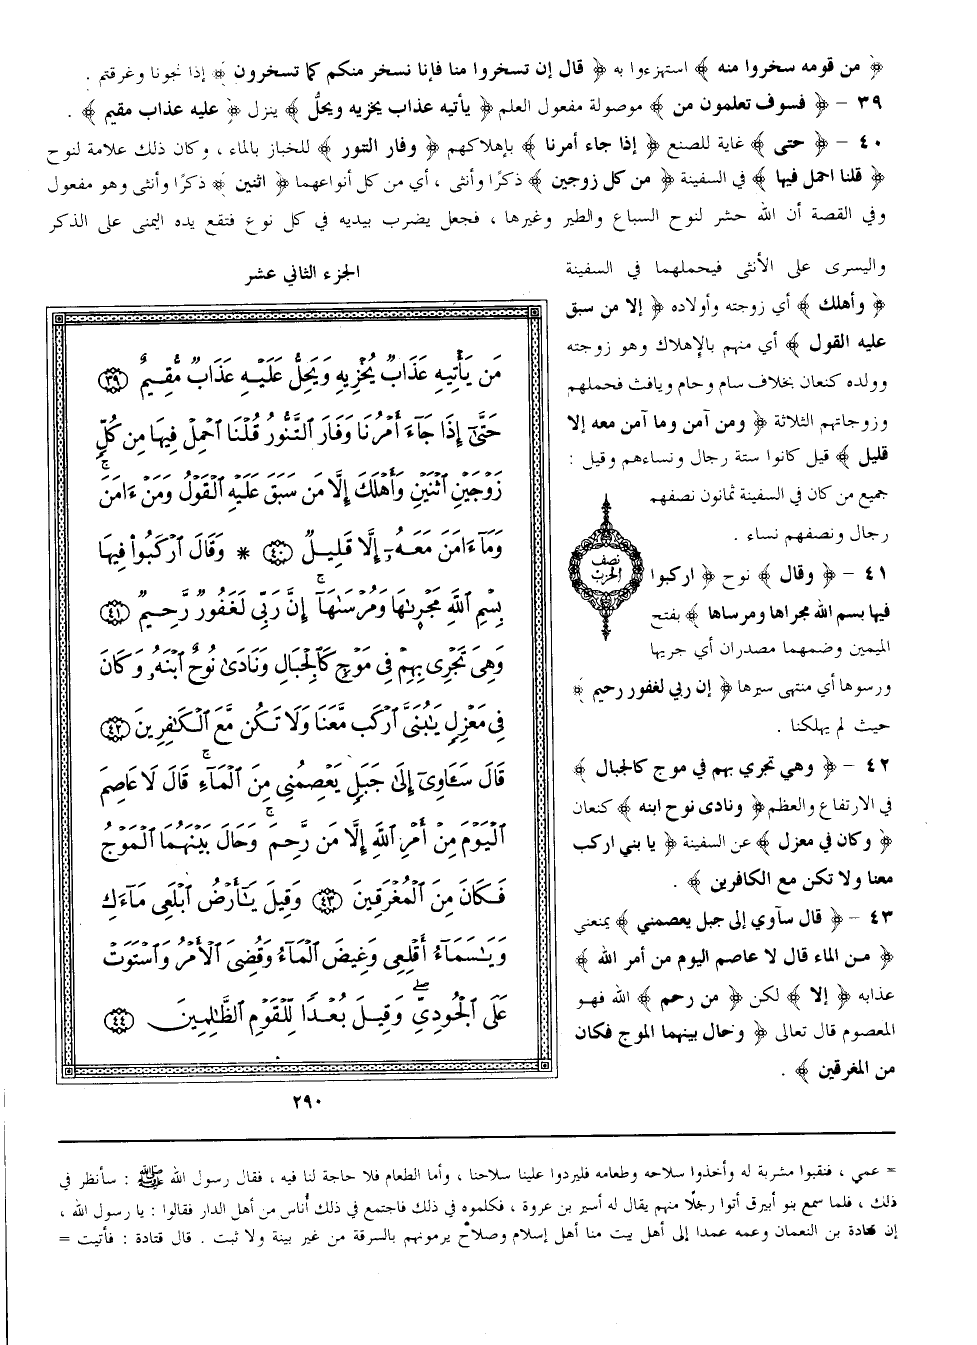 ﴿ من قومه سخروا منه ﴾ استهزءوا به ﴿ قال إن تسخروا منا فإنا نسخر منكم كما تسخرون ﴾ إذا نجونا وغرقتم .
٣٩ – ﴿ فسوف تعلمون من ﴾ موصولة مفعول العلم ﴿ يأتيه عذاب يخزيه ويحلُّ ﴾ ينزل ﴿ عليه عذاب مقيم ﴾ .
٤٠ – ﴿ حتى ﴾ غاية للصنع ﴿ إذا جاء أمرنا ﴾ بإهلاكهم ﴿ وفار التنور ﴾ للخباز بالماء ، وكان ذلك علامة لنوح
﴿ قلنا احمل فيها ﴾ في السفينة ﴿ من كل زوجين ﴾ ذكرًا وأنثى ، أي من كل أنواعهما ﴿ اثنين ﴾ ذكرًا وأنثى وهو مفعول
وفي القصة أن الله حشر لنوح السباع والطير وغيرها ، فجعل يضرب بيديه في كل نوع فتقع يده اليمنى على الذكر
واليسرى على الأنثى فيحملهما في السفينة
﴿ وأهلك ﴾ أي زوجته وأولاده ﴿ إلا من سبق
عليه القول ﴾ أي منهم بالإهلاك وهو زوجته
وولده كنعان بخلاف سام وحام ويافث فحملهم
وزوجاتهم الثلاثة ﴿ ومن آمن وما آمن معه إلا
قليل ﴾ قيل كانوا ستة رجال ونساءهم وقيل :
جميع من كان في السفينة ثمانون نصفهم
رجال ونصفهم نساء .
٤١ – ﴿ وقال ﴾ نوح ﴿ اركبوا
فيها بسم الله مجراها ومرساها ﴾ بفتح
الميمين وضمهما مصدران أي جريها
ورسوها أي منتهى سيرها ﴿ إن ربي لغفور رحيم ﴾
حيث لم يهلكنا .
٤٢ – ﴿ وهي تجري بهم في موج كالجبال ﴾
في الارتفاع والعظم ﴿ ونادى نوح ابنه ﴾ كنعان
﴿ وكان في معزل ﴾ عن السفينة ﴿ يا بني اركب
معنا ولا تكن مع الكافرين ﴾ .
٤٣ – ﴿ قال سآوي إلى جبل يعصمني ﴾ يمنعني
﴿ من الماء قال لا عاصم اليوم من أمر الله ﴾
عذابه ﴿ إلا ﴾ لكن ﴿ من رحم ﴾ الله فهو
المعصوم قال تعالى ﴿ وحال بينهما الموج فكان
من المغرقين ﴾ .
نصف
الحزب
الجزء الثاني عشر
مَن يَأْتِيهِ عَذَابٌ يُخْزِيهِ وَيَحِلُّ عَلَيْهِ عَذَابٌ مُّقِيمٌ ٣٩
حَتَّىٰٓ إِذَا جَآءَ أَمْرُنَا وَفَارَ ٱلتَّنُّورُ قُلْنَا ٱحْمِلْ فِيهَا مِن كُلٍّ
زَوْجَيْنِ ٱثْنَيْنِ وَأَهْلَكَ إِلَّا مَن سَبَقَ عَلَيْهِ ٱلْقَوْلُ وَمَنْ ءَامَنَ ۚ
وَمَآ ءَامَنَ مَعَهُۥٓ إِلَّا قَلِيلٌ ٤٠ * وَقَالَ ٱرْكَبُوا۟ فِيهَا
بِسْمِ ٱللَّهِ مَجْر۪ىٰهَا وَمُرْسَىٰهَآ ۚ إِنَّ رَبِّى لَغَفُورٌ رَّحِيمٌ ٤١
وَهِىَ تَجْرِى بِهِمْ فِى مَوْجٍ كَٱلْجِبَالِ وَنَادَىٰ نُوحٌ ٱبْنَهُۥ وَكَانَ
فِى مَعْزِلٍ يَٰبُنَىَّ ٱرْكَب مَّعَنَا وَلَا تَكُن مَّعَ ٱلْكَٰفِرِينَ ٤٢
قَالَ سَـَٔاوِىٓ إِلَىٰ جَبَلٍ يَعْصِمُنِى مِنَ ٱلْمَآءِ ۚ قَالَ لَا عَاصِمَ
ٱلْيَوْمَ مِنْ أَمْرِ ٱللَّهِ إِلَّا مَن رَّحِمَ ۚ وَحَالَ بَيْنَهُمَا ٱلْمَوْجُ
فَكَانَ مِنَ ٱلْمُغْرَقِينَ ٤٣ وَقِيلَ يَٰٓأَرْضُ ٱبْلَعِى مَآءَكِ
وَيَٰسَمَآءُ أَقْلِعِى وَغِيضَ ٱلْمَآءُ وَقُضِىَ ٱلْأَمْرُ وَٱسْتَوَتْ
عَلَى ٱلْجُودِىِّ ۖ وَقِيلَ بُعْدًا لِّلْقَوْمِ ٱلظَّٰلِمِينَ ٤٤
٢٩٠
= عمي ، فنقبوا مشربة له وأخذوا سلاحه وطعامه فليردوا علينا سلاحنا ، وأما الطعام فلا حاجة لنا فيه ، فقال رسول الله ﷺ : سأنظر في
ذلك ، فلما سمع بنو أبيرق أتوا رجلًا منهم يقال له أسير بن عروة ، فكلموه في ذلك فاجتمع في ذلك أُناس من أهل الدار فقالوا : يا رسول الله ،
إن قتادة بن النعمان وعمه عمدا إلى أهل بيت منا أهل إسلام وصلاح يرمونهم بالسرقة من غير بينة ولا ثبت . قال قتادة : فأتيت =